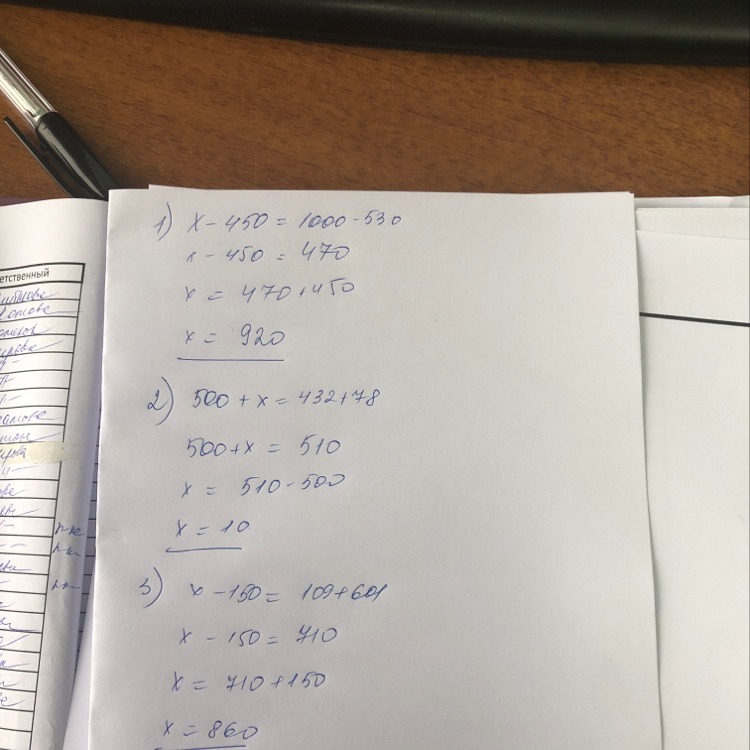 етственный
1) x - 450 = 1000 - 530
x - 450 = 470
x = 470 + 450
x = 920
2) 500 + x = 432 + 78
500 + x = 510
x = 510 - 500
x = 10
3) x - 150 = 109 + 601
x - 150 = 710
x = 710 + 150
x = 860